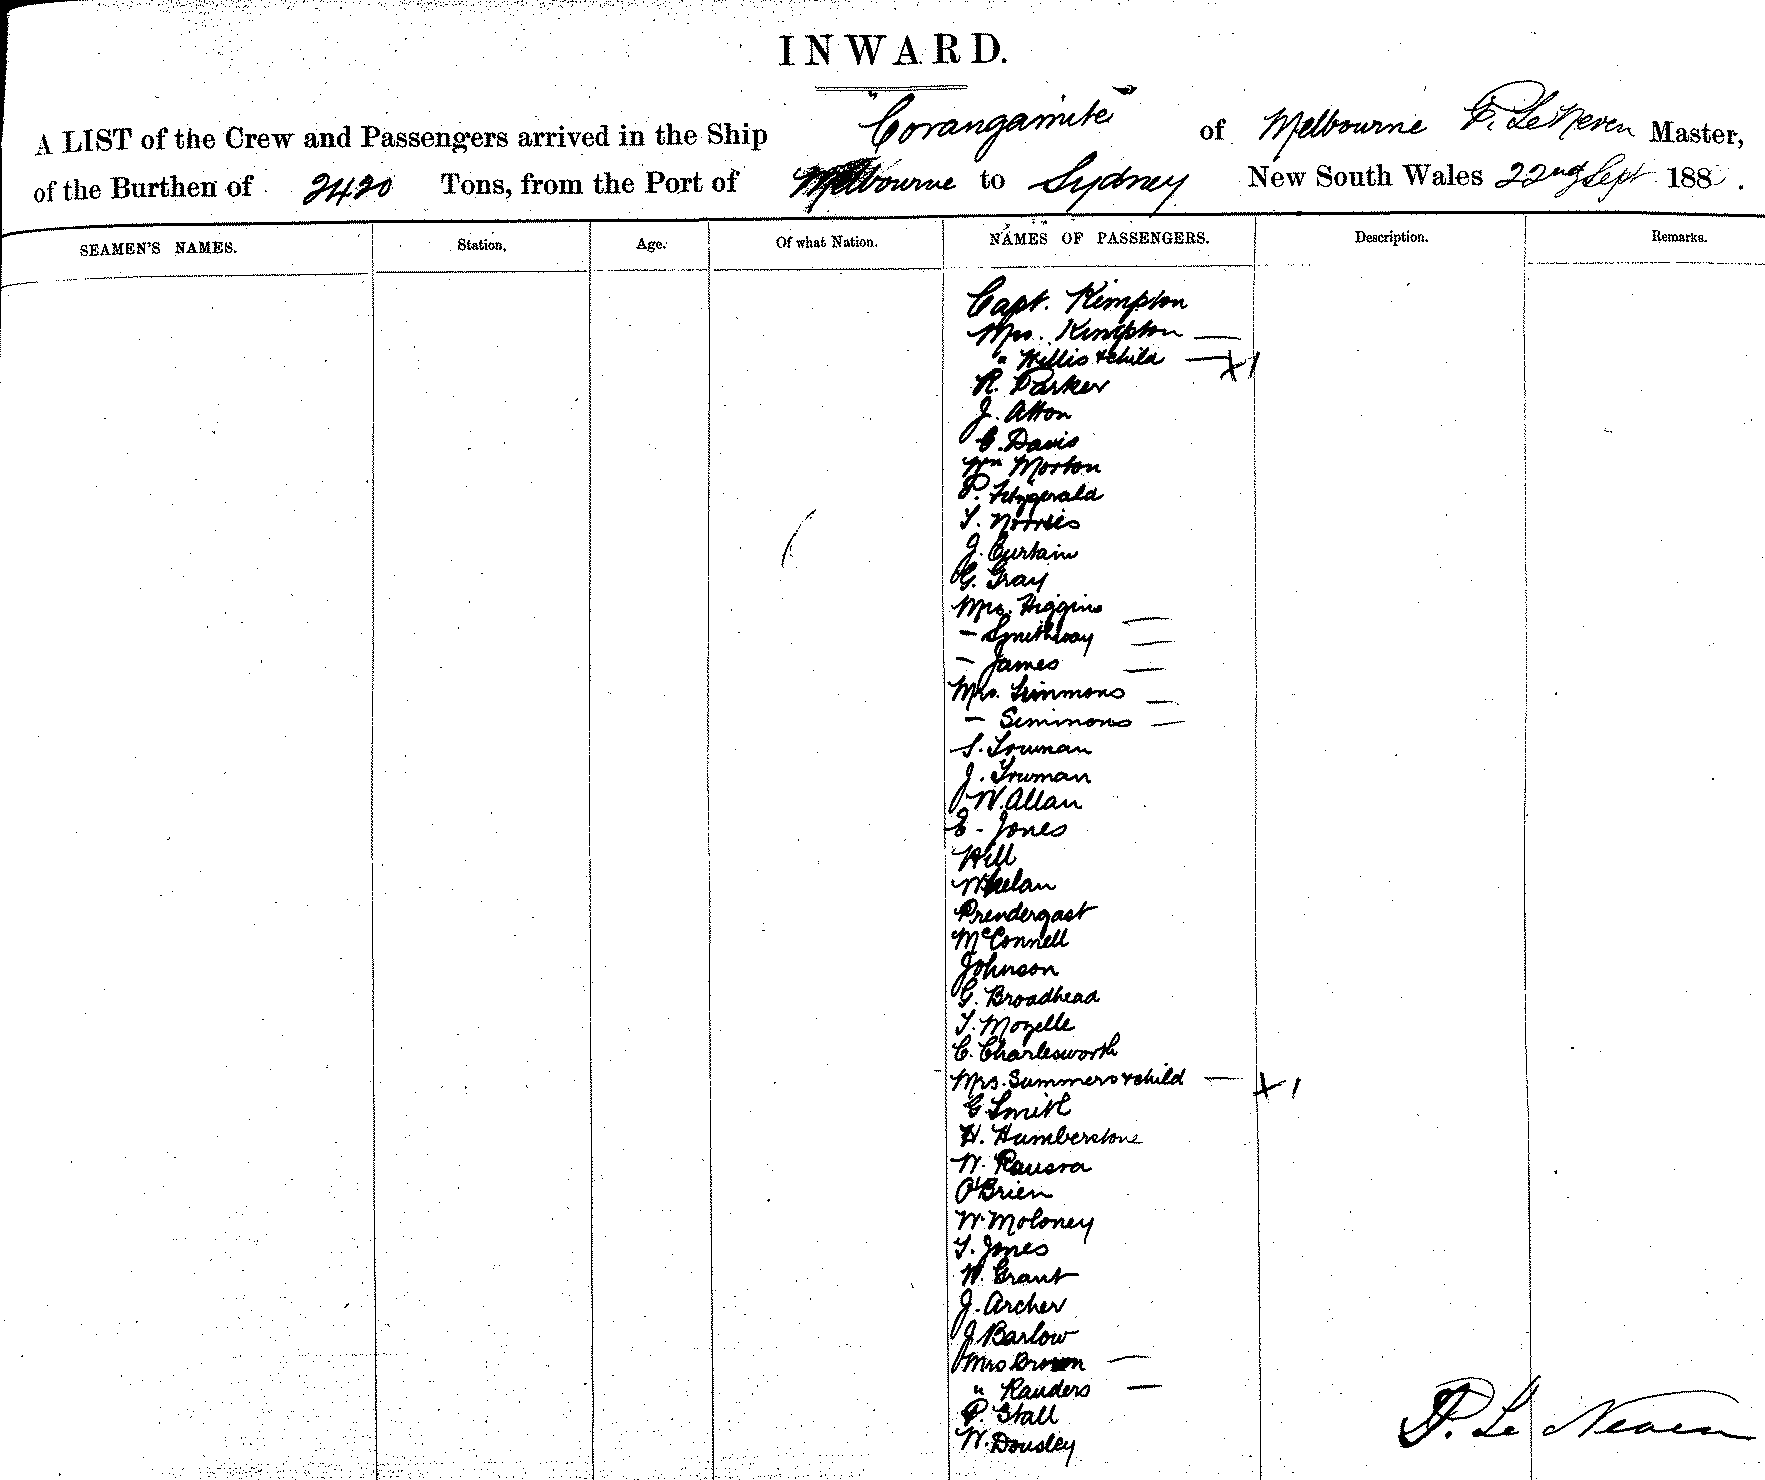 INWARD.
A LIST of the Crew and Passengers arrived in the Ship "Corangamite" of Melbourne P. Le Neven Master,
of the Burthen of 2420 Tons, from the Port of Melbourne to Sydney New South Wales 22nd Sept 188 .
SEAMEN'S NAMES. Station. Age. Of what Nation. NAMES OF PASSENGERS. Description. Remarks.
Capt. Kimpton
Mrs. Kimpton —
" Willis & child — X 1
R. Parker
J. Atton
C. Davis
Wm Morton
P. Fitzgerald
T. Norris
J. Curtain
G. Gray
Mrs. Higgins —
— Smithway —
— James —
Mrs. Simmons —
— Simmons —
S. Truman
J. Truman
W. Allan
E. Jones
Hill
Whelan
Prendergast
McConnell
Johnson
G. Broadhead
T. Mozelle
C. Charlesworth
Mrs. Summers & child — X 1
G Smith
H. Humberstone
W.
O'Brien
W. Moloney
T. Jones
W. Grant
J. Archer
J Barlow
Mrs Brown —
" Randers —
P. Stall
W. Dousley
P. Le Neven